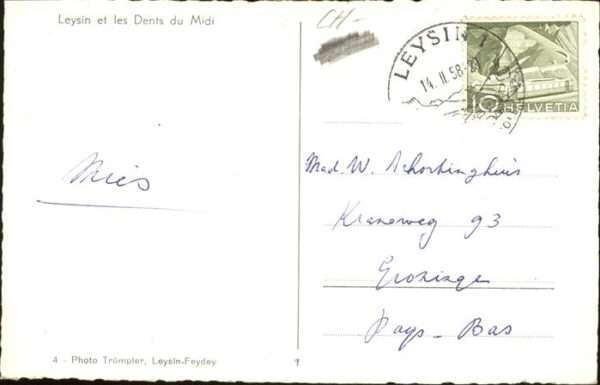 Leysin et les Dents du Midi
CH-
LEYSIN 1
14. II. 58-21
10 HELVETIA
Mies
Mad. W. Schortinghuis
Kraneweg 93
Groningen
Pays-Bas
4 - Photo Trümpler, Leysin-Feydey